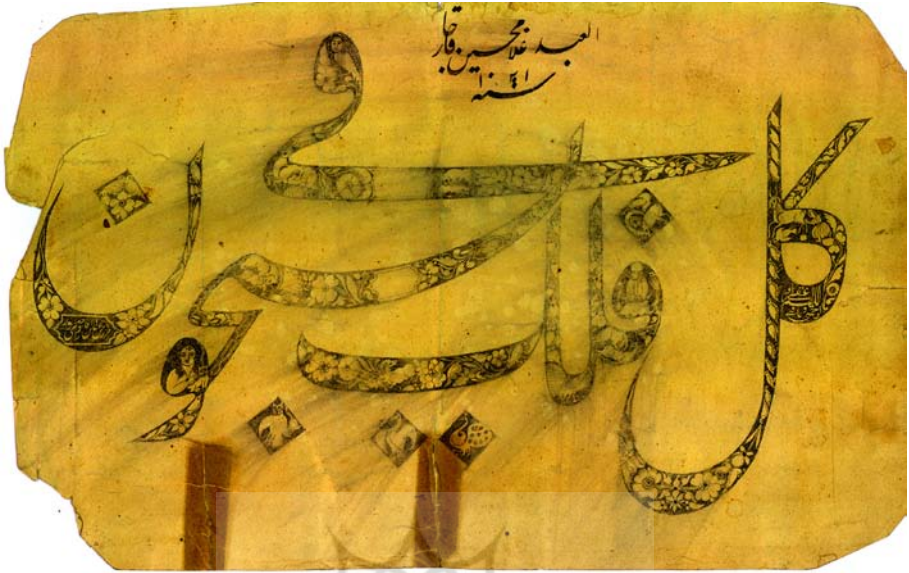 العبد غلامحسین قاجار
سنه
کل فی فلک یسبحون